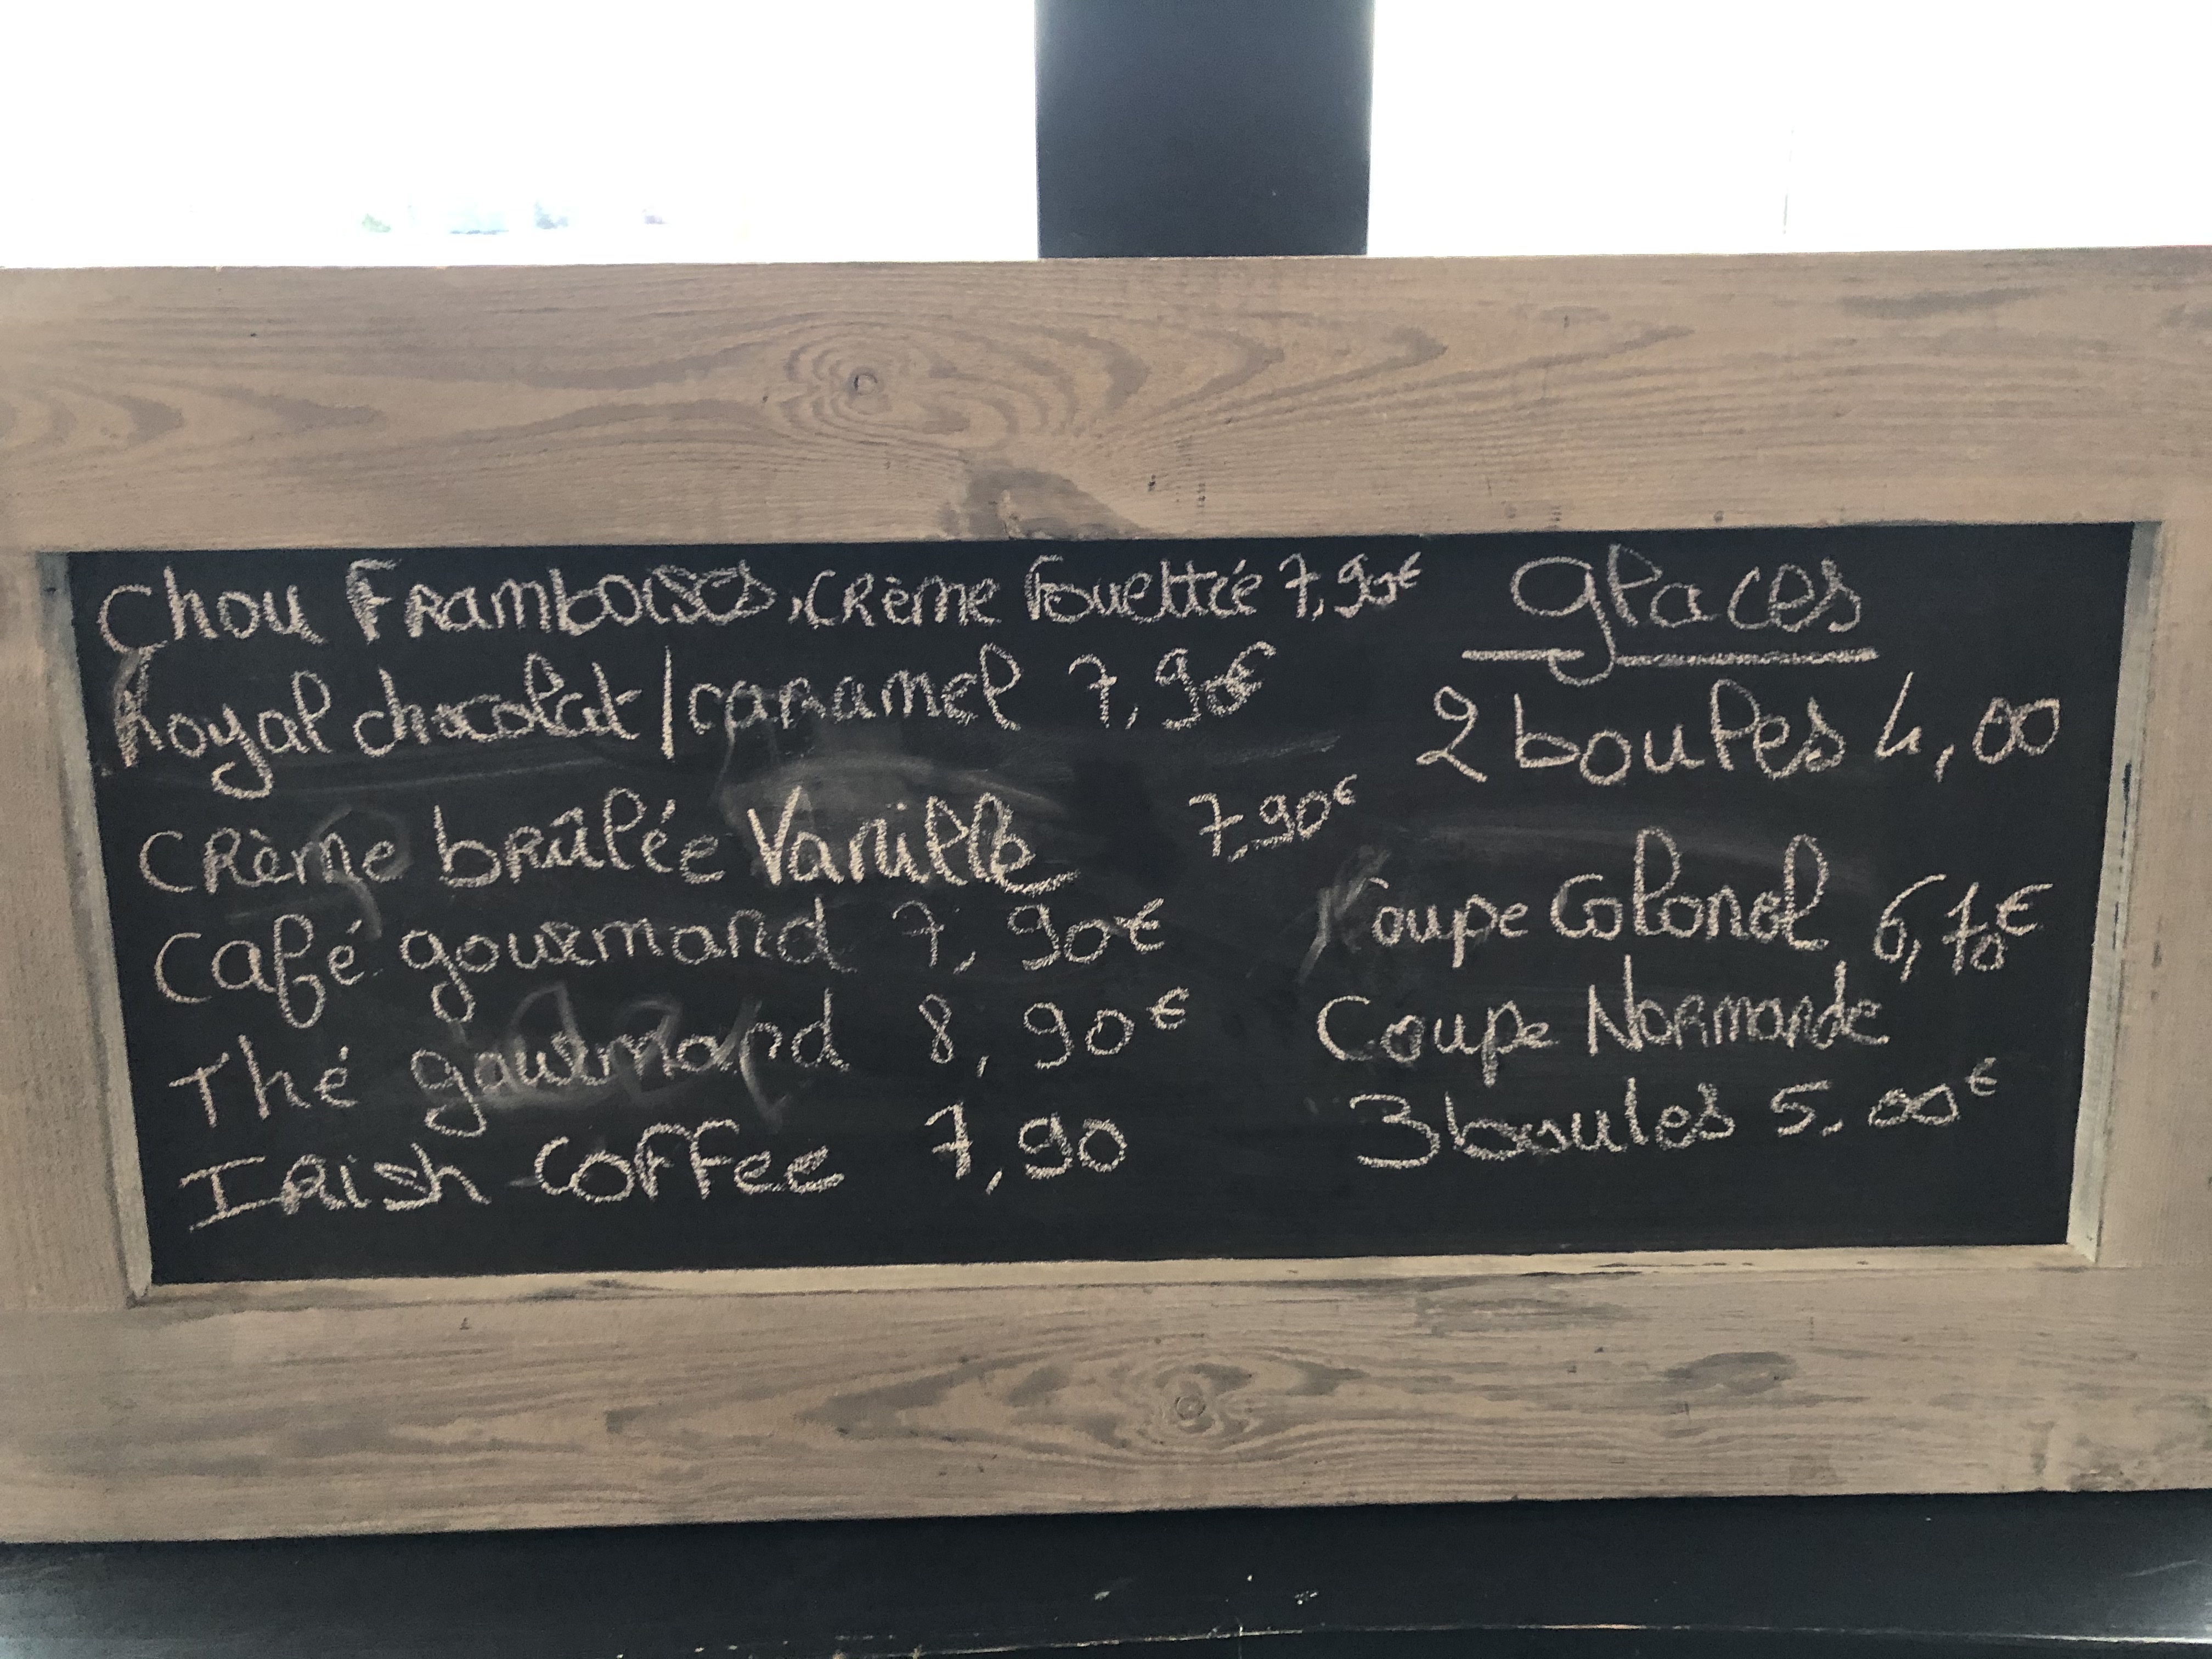 Chou Framboises, crème fouettée 7,90€
Royal chocolat/caramel 7,90€
Crème brûlée Vanille 7,90€
Café gourmand 7,90€
Thé gourmand 8,90€
Irish coffee 7,90
glaces
2 boules 4,00
Coupe Colonel 6,70€
Coupe Normande
3 boules 5,00€